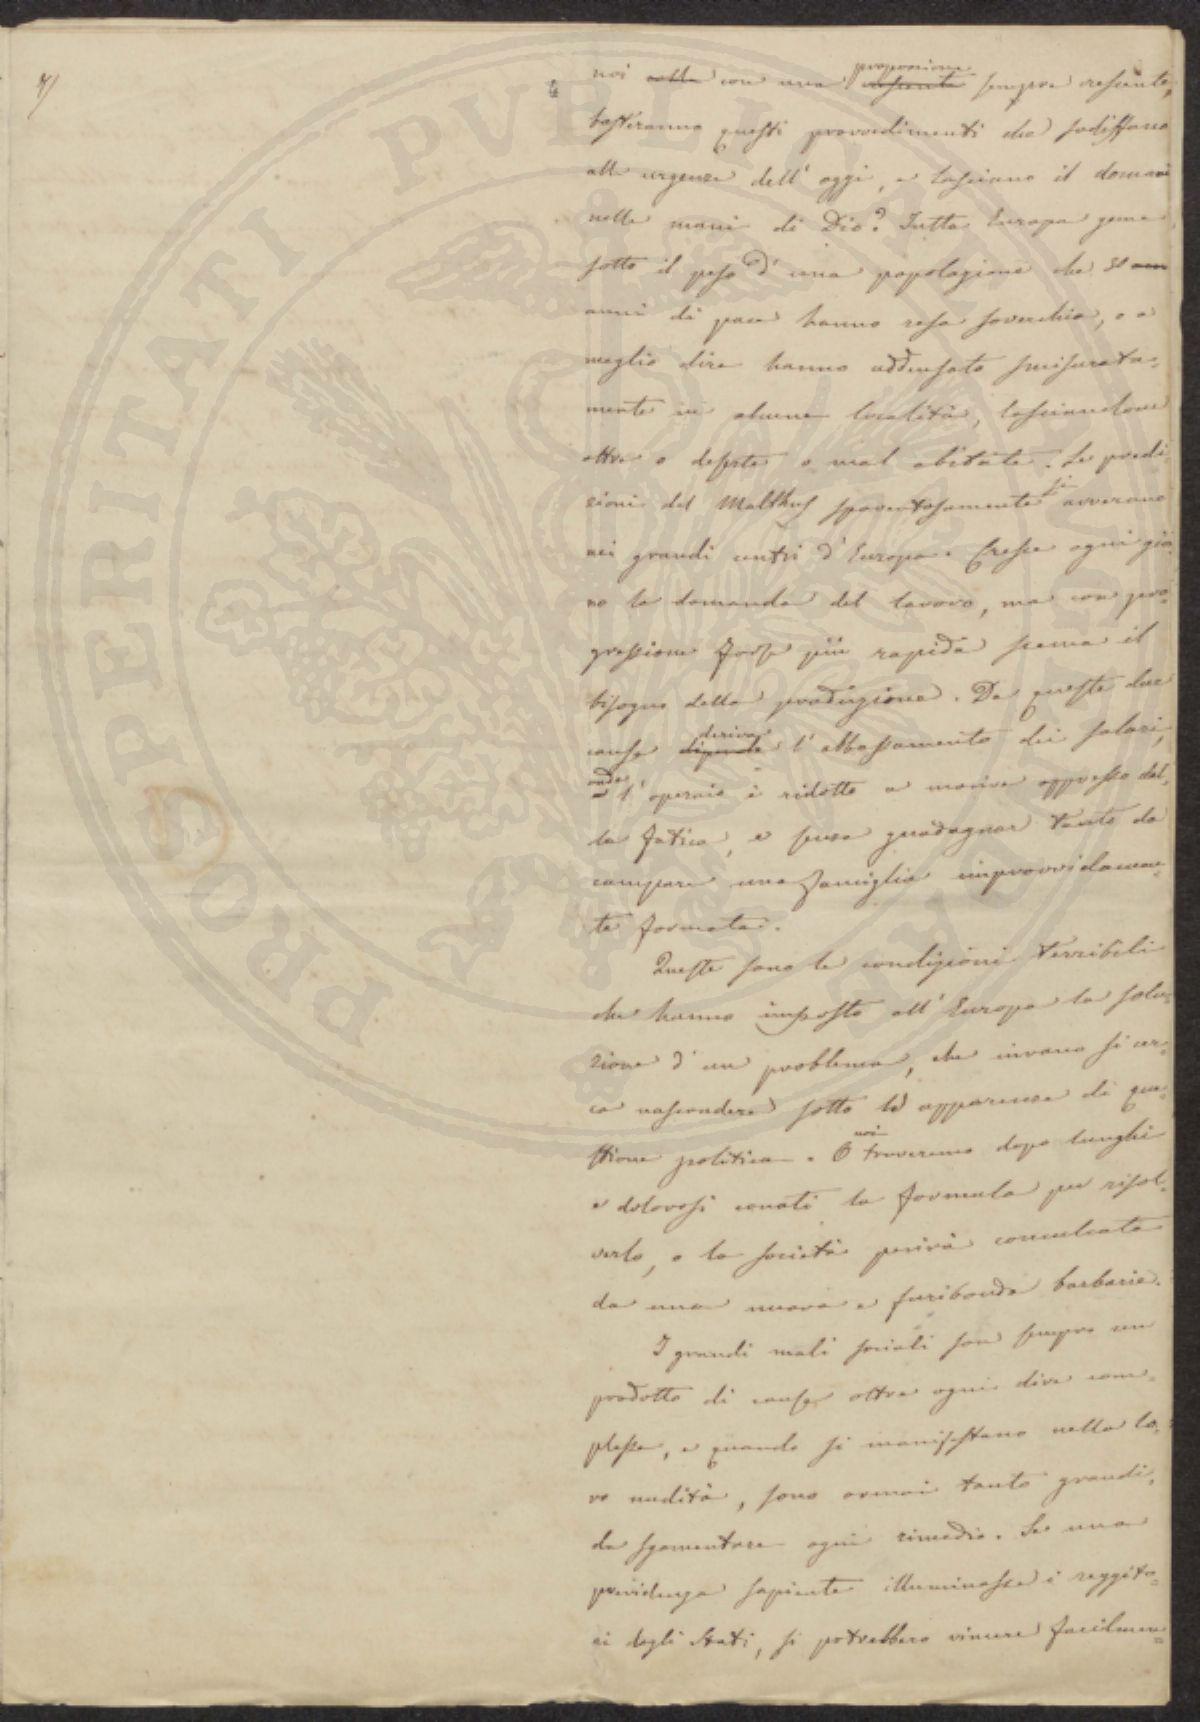 4)
4
noi colla con una proporzione crescente sempre crescente,
basteranno questi provvedimenti che sodisfano
alle urgenze dell' oggi, e lasciano il domani
nelle mani di Dio? Tutta Europa geme
sotto il peso d' una popolazione che 30 ann
anni di pace hanno resa soverchia, o a
meglio dire hanno addensato smisurata=
mente in alcune località, lasciandone
altre o deserte o mal abitate. Le predi=
zioni del Malthus spaventosamente si avverano
nei grandi centri d' Europa. Cresce ogni gior
no la domanda del lavoro, ma con pro=
gressione forse più rapida scema il
bisogno della produzione. Da queste due
cause dipende deriva l' abbassamento dei salari,
onde l' operaio è ridotto a morire oppresso dal=
la fatica, e senza guadagnar tanto da
campare una famiglia improvvidamen=
te formata.
Queste sono le condizioni terribili
che hanno imposto all' Europa la solu=
zione d' un problema, che invano si cer=
ca nascondere sotto le apparenze di que=
stione politica. O noi troveremo dopo lunghi
e dolorosi conati la formula per risol=
verlo, o la società perirà conculcata
da una nuova e furibonda barbarie.
I grandi mali sociali son sempre un
prodotto di cause oltre ogni dire com=
plesse, e quando si manifestano nella lo=
ro nudità, sono ormai tanto grandi,
da sgomentare ogni rimedio. Se una
previdenza sapiente illuminasse i reggito=
ri degli Stati, si potrebbero vincere facilmen=
PROPERITATI PVBLICAE